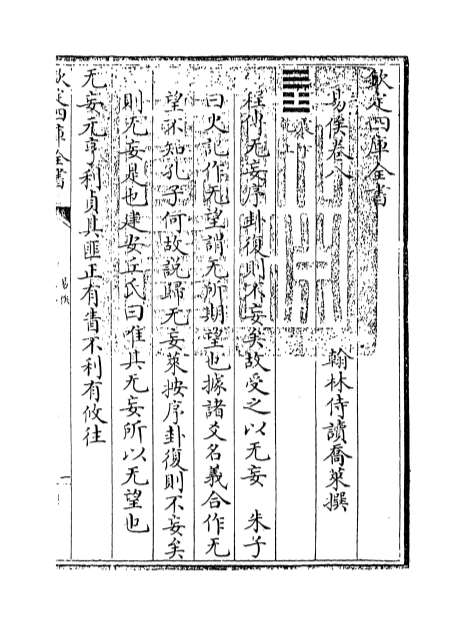 欽定四庫全書
易俟卷八
翰林侍讀喬萊撰
䷘
程傳无妄序卦復則不妄矣故受之以无妄 朱子
曰史記作无望謂无所期望也據諸爻名義合作无
望不知孔子何故說歸无妄萊按序卦復則不妄矣
則无妄是也建安丘氏曰唯其无妄所以无望也
无妄元亨利貞其匪正有眚不利有攸往
欽定四庫全書